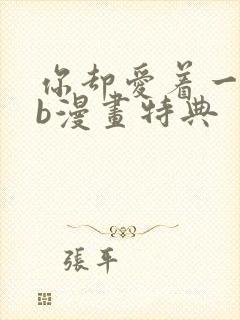 你却愛着一
b漫畫特典
張平